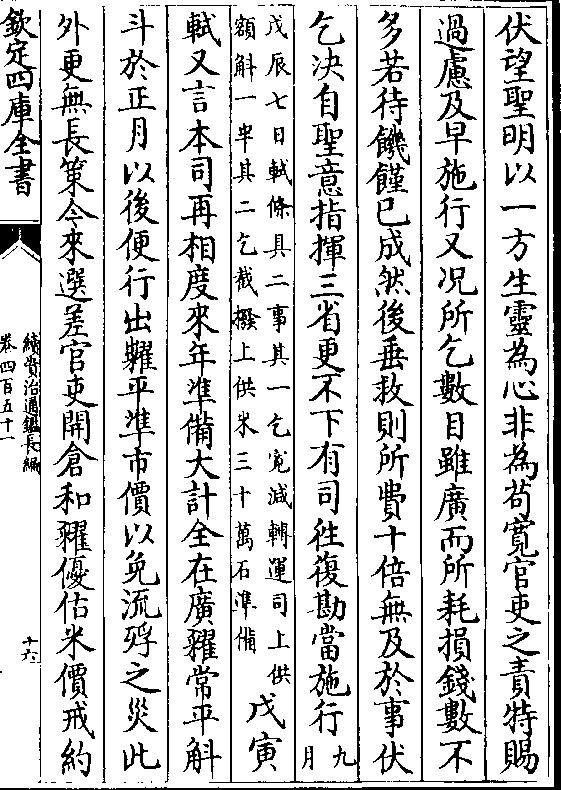 伏望聖明以一方生靈為心非為苟寛官吏之責特賜
過慮及早施行又况所乞數目雖廣而所耗損錢數不
多若待饑饉已成然後垂救則所費十倍無及於事伏
乞决自聖意指揮三省更不下有司往復勘當施行九月
戊辰七日軾條具二事其一乞寛減轉運司上供
額斛一半其二乞截撥上供米三十萬石準備
戊寅
軾又言本司再相度來年準備大計全在廣糴常平斛
斗於正月以後便行出糶平準市價以免流殍之災此
外更無長策今來選差官吏開倉和糴優估米價戒約
欽定四庫全書
續資治通鑑長編
卷四百五十一
十六